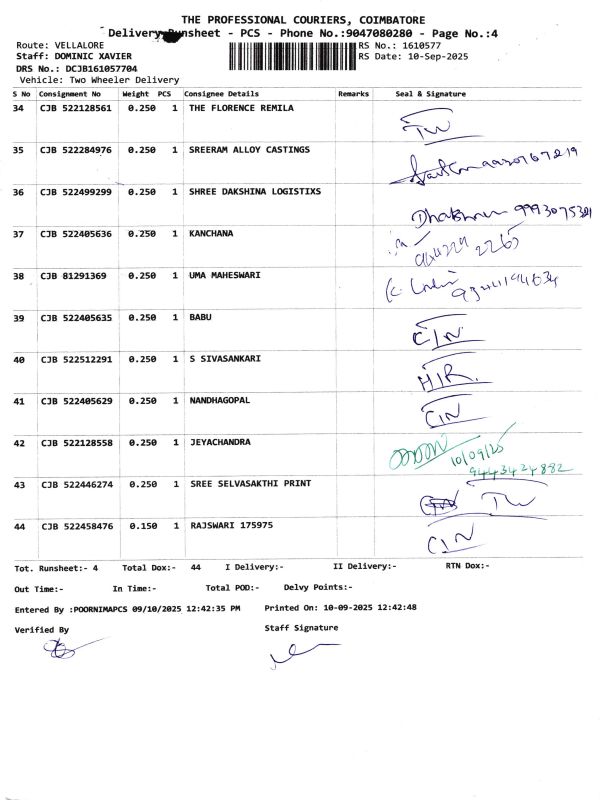 THE PROFESSIONAL COURIERS, COIMBATORE
Delivery Runsheet - PCS - Phone No.:9047080280 - Page No.:4
Route: VELLALORE RS No.: 1610577
Staff: DOMINIC XAVIER RS Date: 10-Sep-2025
DRS No.: DCJB161057704
Vehicle: Two Wheeler Delivery
S No Consignment No Weight PCS Consignee Details Remarks Seal & Signature
34 CJB 522128561 0.250 1 THE FLORENCE REMILA
TW
35 CJB 522284976 0.250 1 SREERAM ALLOY CASTINGS
36 CJB 522499299 0.250 1 SHREE DAKSHINA LOGISTIXS
9993075321
37 CJB 522405636 0.250 1 KANCHANA
38 CJB 81291369 0.250 1 UMA MAHESWARI
39 CJB 522405635 0.250 1 BABU
CIN
40 CJB 522512291 0.250 1 S SIVASANKARI
HIR.
41 CJB 522405629 0.250 1 NANDHAGOPAL
CIN
42 CJB 522128558 0.250 1 JEYACHANDRA
10/09/25
9443424882
43 CJB 522446274 0.250 1 SREE SELVASAKTHI PRINT
TW
44 CJB 522458476 0.150 1 RAJSWARI 175975
CIN
Tot. Runsheet:- 4 Total Dox:- 44 I Delivery:- II Delivery:- RTN Dox:-
Out Time:- In Time:- Total POD:- Delvy Points:-
Entered By :POORNIMAPCS 09/10/2025 12:42:35 PM Printed On: 10-09-2025 12:42:48
Verified By Staff Signature